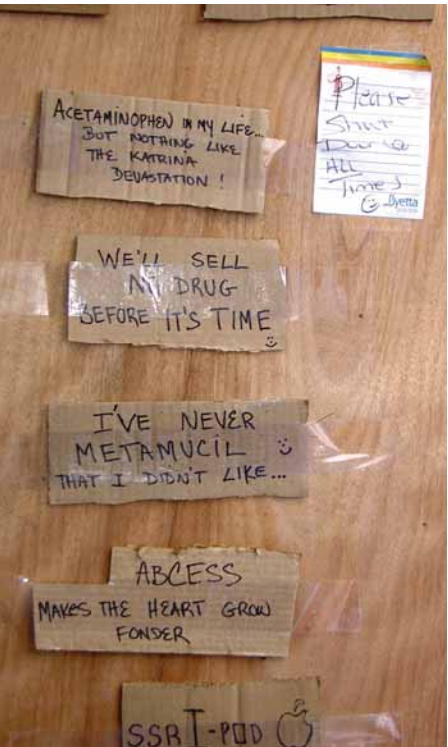 ACETAMINOPHEN IN MY LIFE...
BUT NOTHING LIKE
THE KATRINA
DEVASTATION!
Please
Shut
Door @
ALL
Times
Byetta
WE'LL SELL
NO DRUG
BEFORE IT'S TIME
I'VE NEVER
METAMUCIL
THAT I DIDN'T LIKE...
ABCESS
MAKES THE HEART GROW
FONDER
SSRI-POD